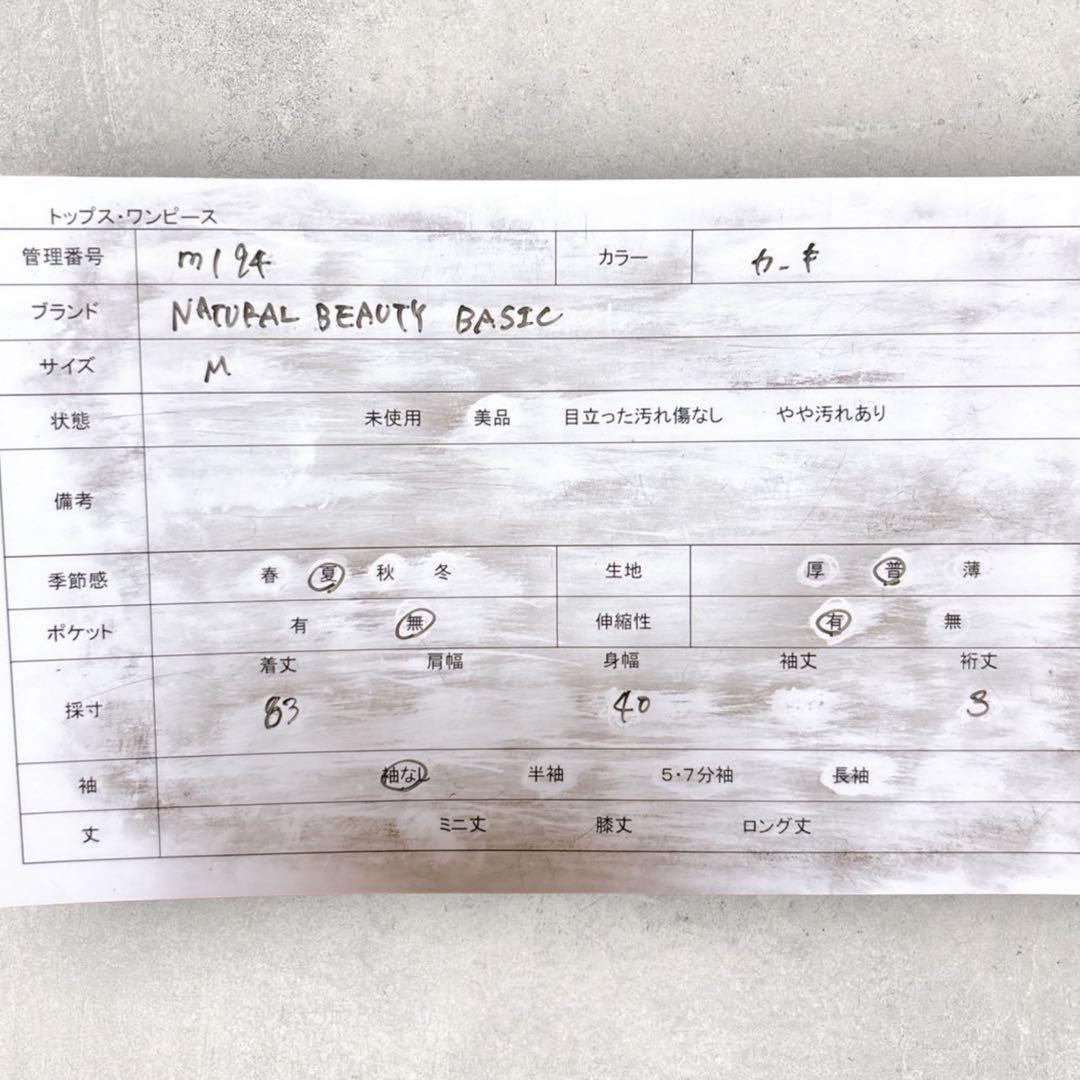 トップス・ワンピース
管理番号 m194 カラー カーキ
ブランド NATURAL BEAUTY BASIC
サイズ M
状態 未使用 美品 目立った汚れ傷なし やや汚れあり
備考
季節感 春 夏 秋 冬 生地 厚 普 薄
ポケット 有 無 伸縮性 有 無
着丈 肩幅 身幅 袖丈 裄丈
採寸 40
袖 袖なし 半袖 5・7分袖 長袖
丈 ミニ丈 膝丈 ロング丈